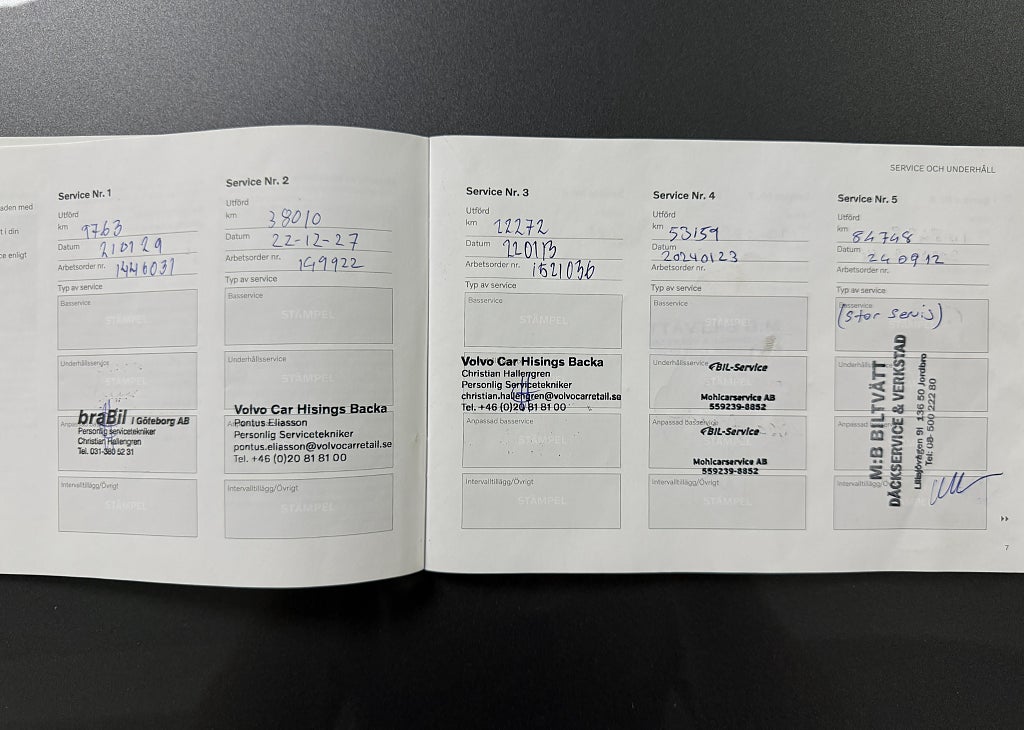 SERVICE OCH UNDERHÅLL
aden med
t i din
ce enligt
Service Nr. 1
Utförd
km 9763
Datum 210129
Arbetsorder nr. 1446031
Typ av service
Basservice
STÄMPEL
Underhållsservice
STÄMPEL
braBil / Göteborg AB
Personlig servicetekniker
Christian Hallengren
Tel. 031-380 52 31
Intervalltillägg/Övrigt
STÄMPEL
Service Nr. 2
Utförd
km 38010
Datum 22-12-27
Arbetsorder nr. 149922
Typ av service
Basservice
STÄMPEL
Underhållsservice
STÄMPEL
Volvo Car Hisings Backa
Pontus Eliasson
Personlig Servicetekniker
pontus.eliasson@volvocarretail.se
Tel. +46 (0)20 81 81 00
Intervalltillägg/Övrigt
STÄMPEL
Service Nr. 3
Utförd
km 22272
Datum 220113
Arbetsorder nr. 1521036
Typ av service
Basservice
STÄMPEL
Volvo Car Hisings Backa
Christian Hallengren
Personlig Servicetekniker
christian.hallengren@volvocarretail.se
Tel. +46 (0)20 81 81 00
Anpassad basservice
STÄMPEL
Intervalltillägg/Övrigt
STÄMPEL
Service Nr. 4
Utförd
km 53159
Datum 20240123
Arbetsorder nr.
Typ av service
Basservice
STÄMPEL
Underhållsservice
BIL-Service
Mohlcarservice AB
559239-8852
Anpassad basservice
BIL-Service
Mohlcarservice AB
559239-8852
Intervalltillägg/Övrigt
STÄMPEL
Service Nr. 5
Utförd
km 84748
Datum 240912
Arbetsorder nr.
Typ av service
Basservice
(stor servis)
STÄMPEL
Underhållsservice
Anpassad basservice
Intervalltillägg/Övrigt
STÄMPEL
M:B BILTVÄTT
DÄCKSERVICE & VERKSTAD
Lillsjövägen 91 136 50 Jordbro
Tel: 08- 500 222 80
7